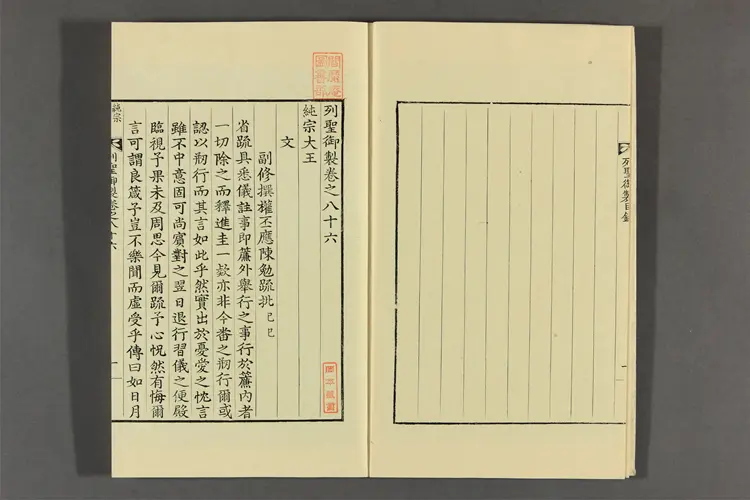 列聖御製目錄
列聖御製卷之八十六
純宗大王
文
副修撰權丕應陳勉疏批 己巳
省疏具悉儀註事即簾外擧行之事行於簾內者
一切除之而釋進圭一款亦非今番之刱行爾或
認以刱行而其言如此乎然實出於憂愛之忱言
雖不中意固可尙賓對之翌日退行習儀之便殿
臨視予果未及周思今見爾疏予心怳然有悔爾
言可謂良箴予豈不樂聞而虛受乎傳曰如日月
純宗
列聖御製卷之八十六
一